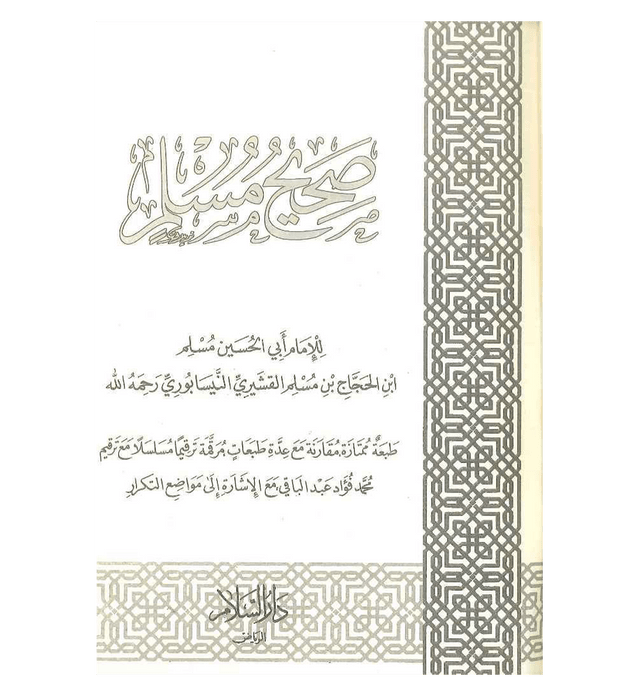 صَحِيحُ مُسْلِم
لِلإِمَامِ أَبِي الحُسَين مُسْلِم
ابْنِ الحَجَّاجِ بْنِ مُسْلِم القُشَيرِيِّ النَّيسَابُورِيِّ رَحِمَهُ الله
طَبعَةٌ مُمتَازَة، مُقَارَنَة مَعَ عِدَّةِ طَبَعَاتٍ مُرَقَّمَة تَرقِيمًا مُسَلسَلًا مَعَ تَرقِيمِ
مُحَمَّد فُؤَاد عَبد البَاقِي، مَعَ الإِشَارَةِ إِلَى مَوَاضِعِ التَّكرَارِ
دَارُ السَّلَام
الرياض